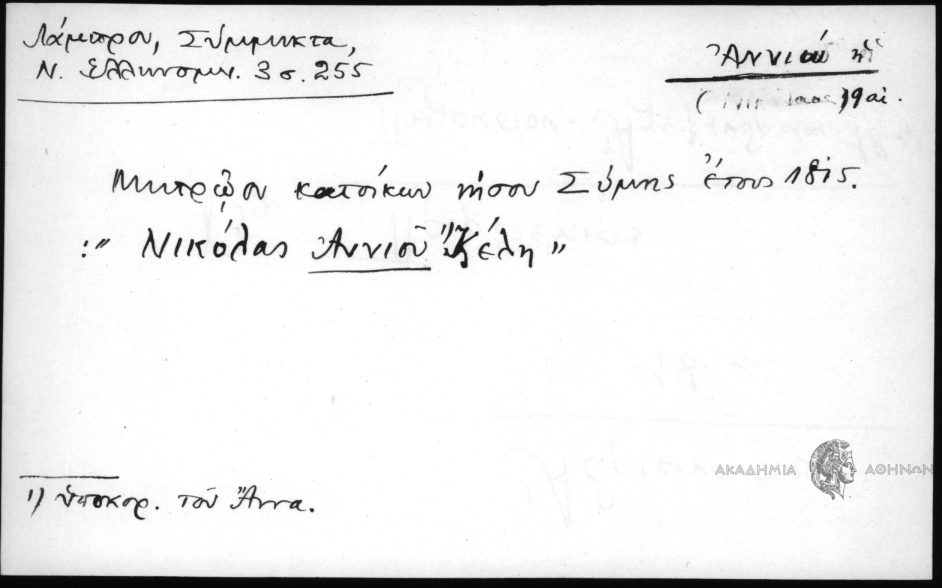 Λάμπρου, Σύμμικτα,
Ν. Ἑλληνομν. 3 σ. 255
Ἀννιοῦ ἡ
19 αἰ.
Μητρῷον κατοίκων νήσου Σύμης ἔτους 1815.
:" Νικόλας Ἀννιοῦ 1) Κέλη"
1) ὑποκορ. τοῦ Ἄννα.
ΑΚΑΔΗΜΙΑ ΑΘΗΝΩΝ